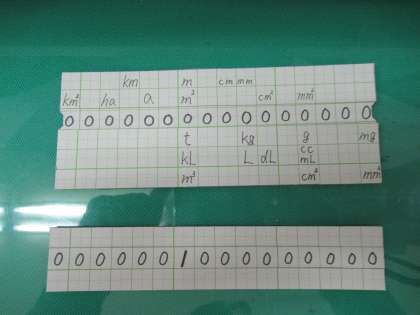 km m cm mm
km² ha a m² cm² mm²
0 0 0 0 0 0 0 0 0 0 0 0 0 0 0 0
t kg g mg
kL L dL cc
mL
m³ cm³ mm³
0 0 0 0 0 0 1 0 0 0 0 0 0 0 0 0 0